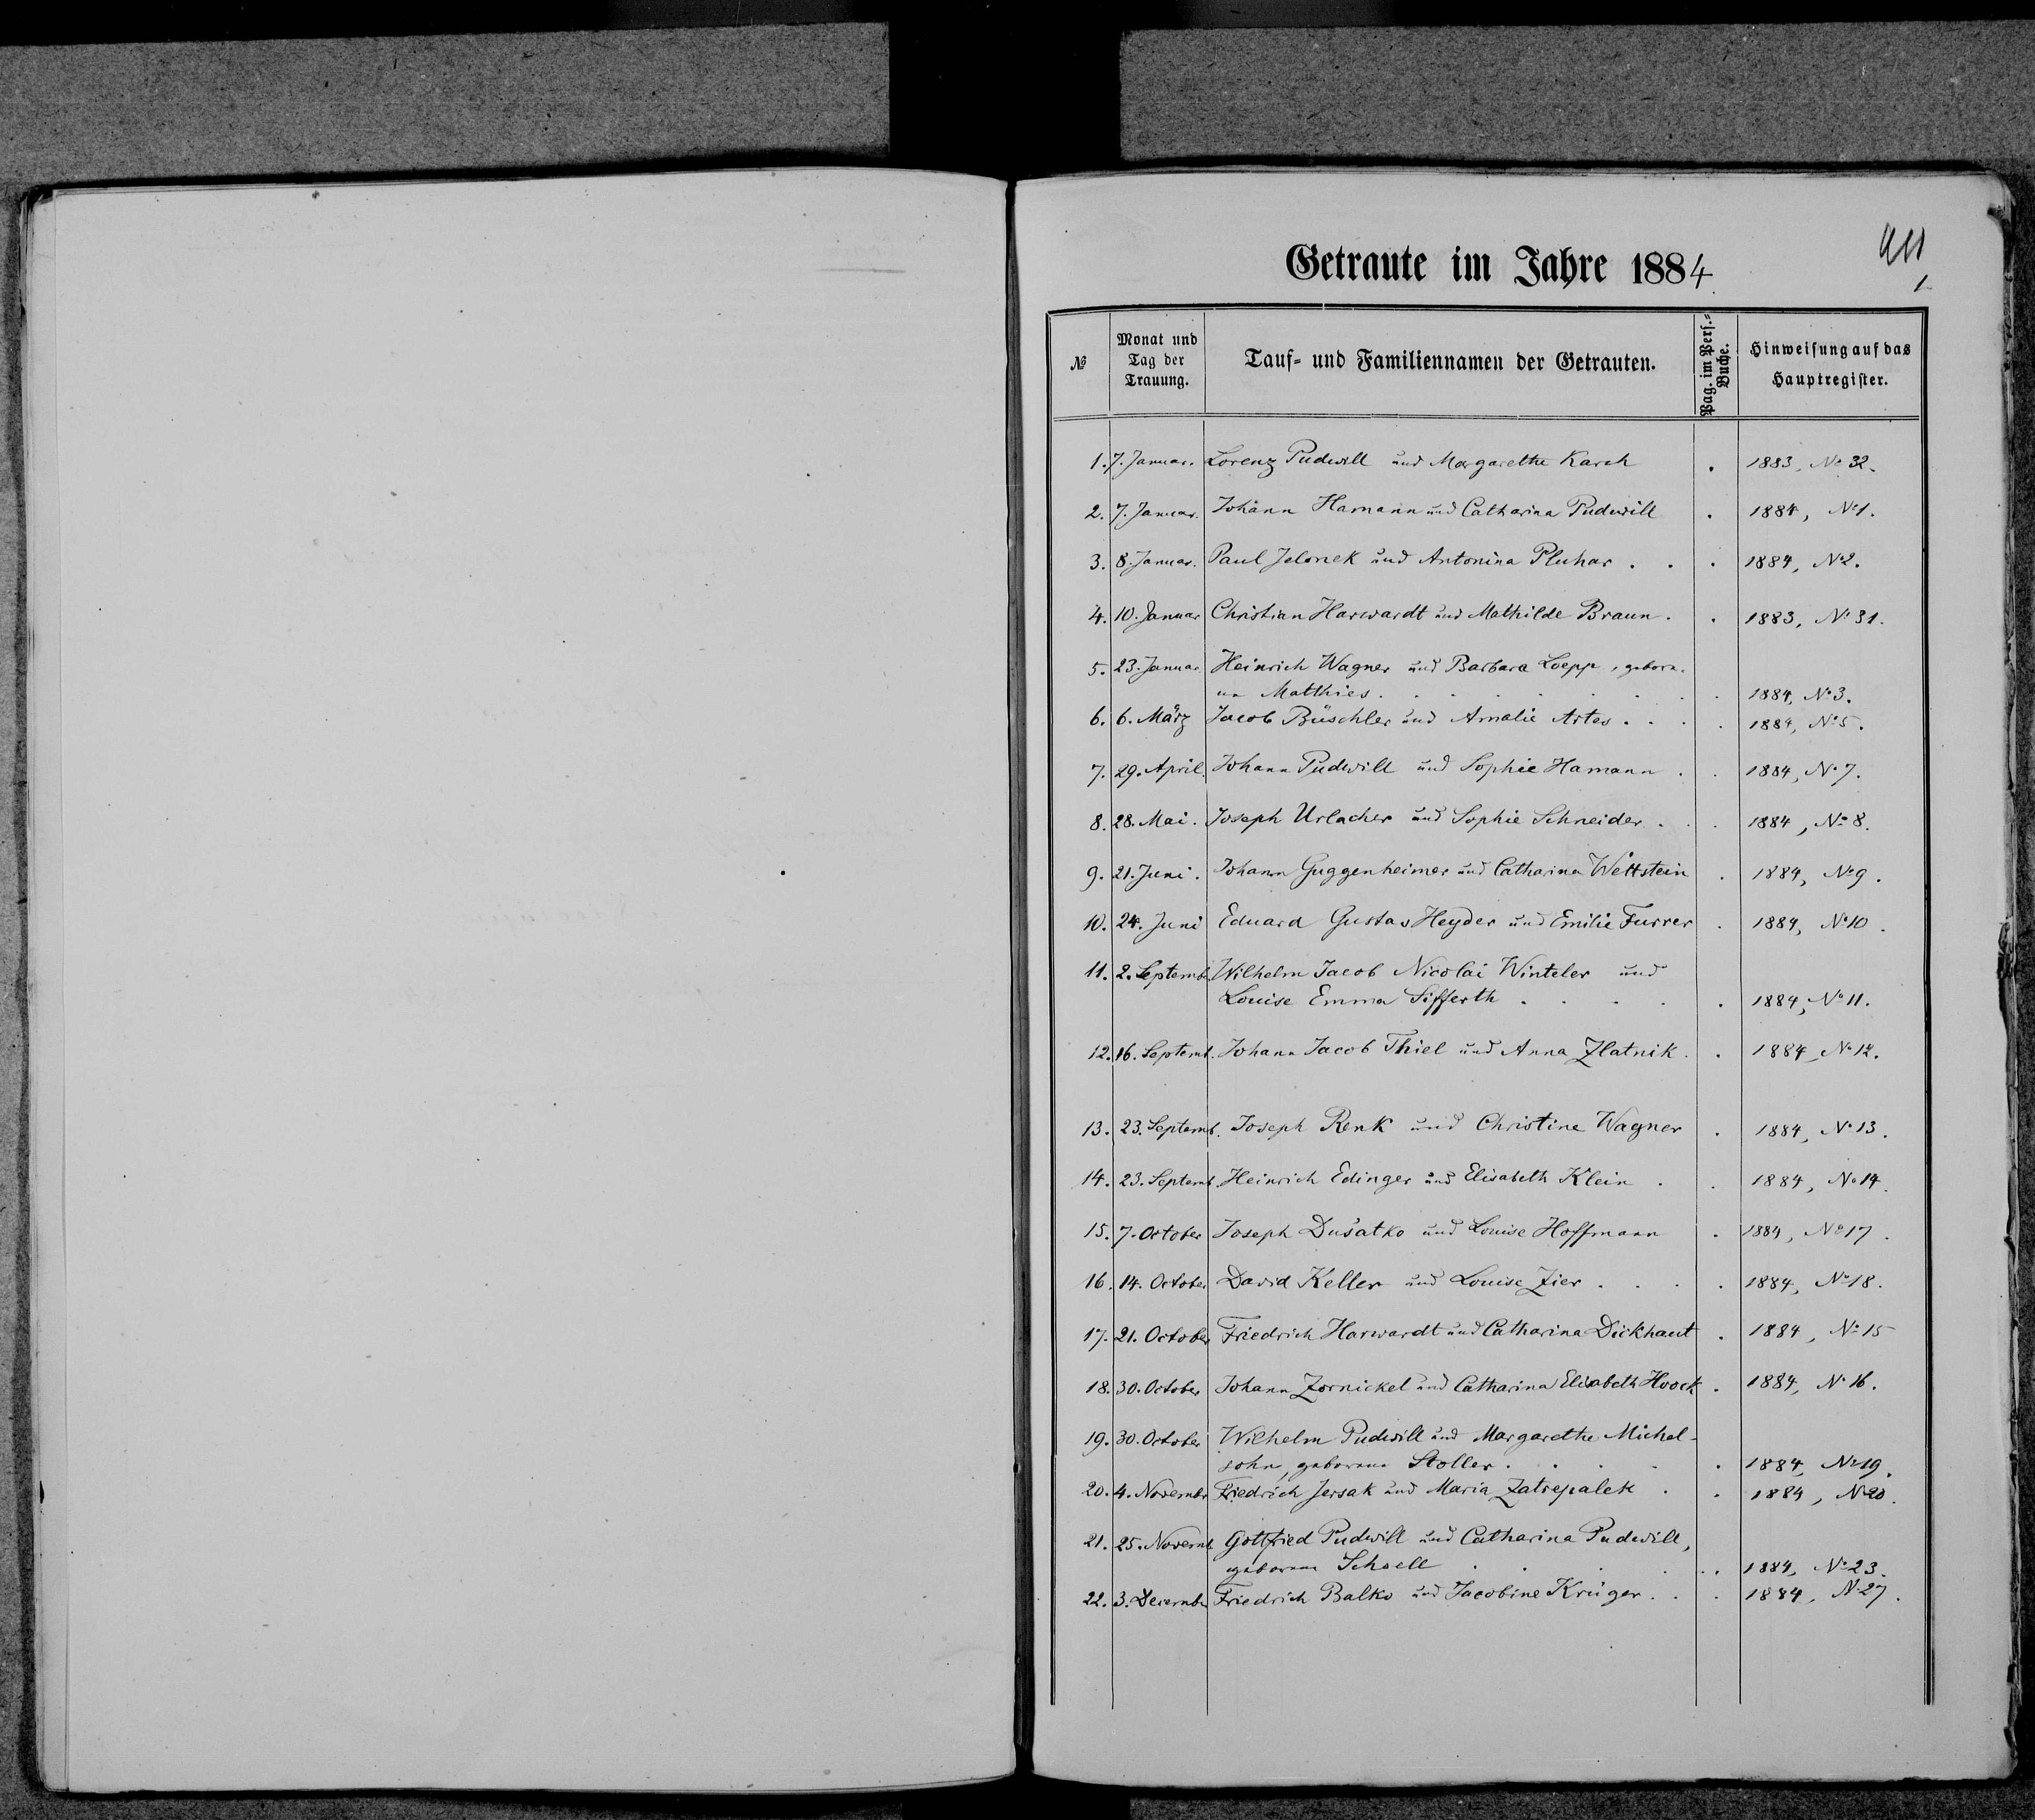 Getraute im Jahre 1884
№ Monat und Tag der Trauung. Tauf- und Familiennamen der Getrauten. Pag. im Pers.-Buche. Hinweisung auf das Hauptregister.
1. 7. Januar. Lorenz Pudwill und Margarethe Karch . 1883, № 32.
2. 7. Januar. Johann Hamann und Catharina Pudwill . 1884, № 1.
3. 8. Januar. Paul Jelonek und Antonina Pluhar . . . 1884, № 2.
4. 10. Januar Christian Harwardt und Mathilde Braun . . 1883, № 31.
5. 23. Januar Heinrich Wagner und Barbara Loepp, gebore-
ne Matthies . . . . . . . 1884, № 3.
6. 6. März Jacob Büschler und Amalie Artes . . . . 1884, № 5.
7. 29. April Johann Pudwill und Sophie Hamann . . 1884, № 7.
8. 28. Mai. Joseph Urlacher und Sophie Schneider . . . 1884, № 8.
9. 21. Juni. Johann Guggenheimer und Catharina Wettstein . 1884, № 9.
10. 24. Juni Eduard Gustav Heyder und Emilie Furrer . 1884, № 10.
11. 2. Septemb. Wilhelm Jacob Nicolai Winteler und
Louise Emma Sifferth . . . . . 1884, № 11.
12. 16. Septemb. Johann Jacob Thiel und Anna Zlatnik . . 1884, № 12.
13. 23. Septemb. Joseph Renk und Christine Wagner . 1884, № 13.
14. 23. Septemb. Heinrich Edinger und Elisabeth Klein . . 1884, № 14.
15. 7. October Joseph Dušatko und Louise Hoffmann . 1884, № 17.
16. 14. October David Keller und Louise Zier . . . . 1884, № 18.
17. 21. October Friedrich Harwardt und Catharina Dickhaut . 1884, № 15
18. 30. October Johann Zornickel und Catharina Elisabeth Hoock . 1884, № 16.
19. 30. October Wilhelm Pudwill und Margarethe Michel-
sohn, geborene Stoller . . . . . 1884, № 19.
20. 4. Novembr Friedrich Jersak und Maria Zatrepalek . . 1884, № 20.
21. 25. Novemb. Gottfried Pudwill und Catharina Pudwill,
geborene Schoell . . . . . 1884, № 23.
22. 3. Decembr Friedrich Balko und Jacobine Krüger . . . 1884, № 27.